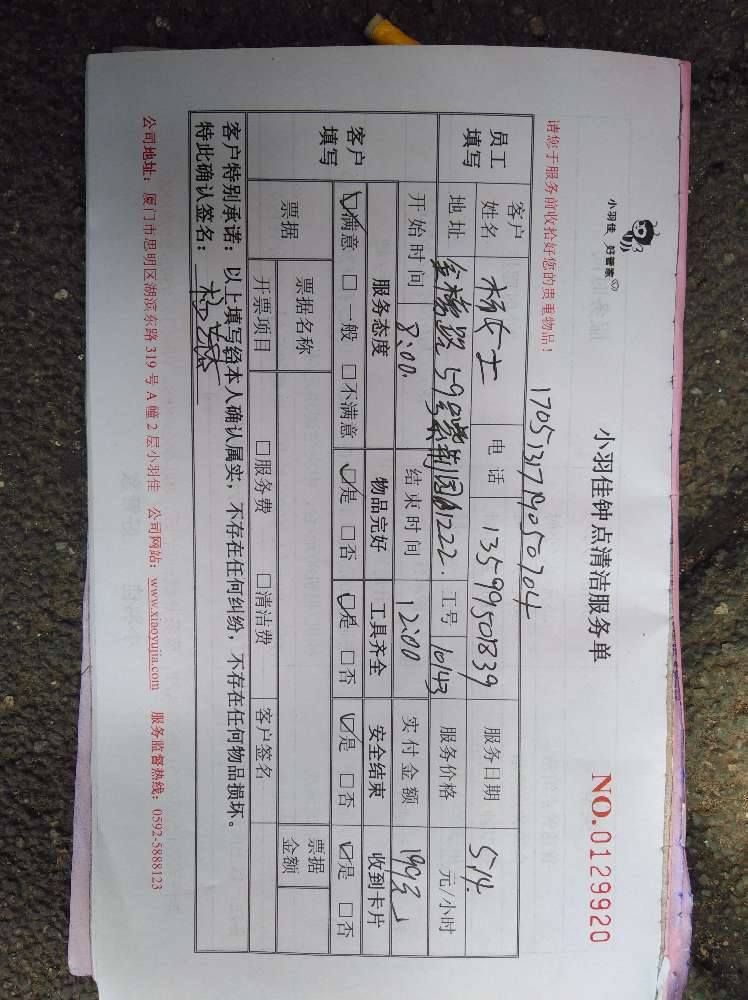 小羽佳 好管家
小羽佳钟点清洁服务单
NO.0129920
请您于服务前收拾好您的贵重物品！
170513171905070​4
员工填写 客户姓名 杨女士 电话 13599501839 服务日期 5.14.
地址 金榜路59号紫荆园A1222. 工号 10143 服务价格 元/小时
开始时间 8:00. 结束时间 12:00 实付金额 190元
客户填写 服务态度 物品完好 工具齐全 安全结束 收到卡片
☑满意 □一般 □不满意 ☑是 □否 ☑是 □否 ☑是 □否 ☑是 □否
票据 票据名称 票据金额
开票项目 □服务费 □清洁费 客户签名
客户特别承诺： 以上填写经本人确认属实，不存在任何纠纷，不存在任何物品损坏。
特此确认签名：
公司地址：厦门市思明区湖滨东路319号A幢2层小羽佳 公司网站：www.xiaoyujia.com 服务监督热线：0592-5888123